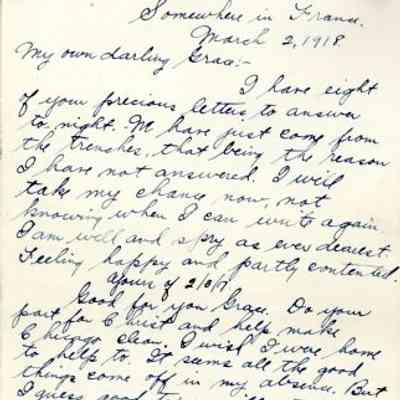 Somewhere in France.
March 2, 1918.
My own darling Grace:-
I have eight
of your precious letters to answer
to-night. We have just come from
the trenches, that being the reason
I have not answered. I will
take my chance now, not
knowing when I can write again.
I am well and spry as ever dearest.
Feeling happy and partly contented.
Yours of 2/0/17
Good for you Grace. Do your
part for Christ and help make
Chicago clean. I wish I were home
to help to. It seems all the good
things come off in my absence. But
I guess good